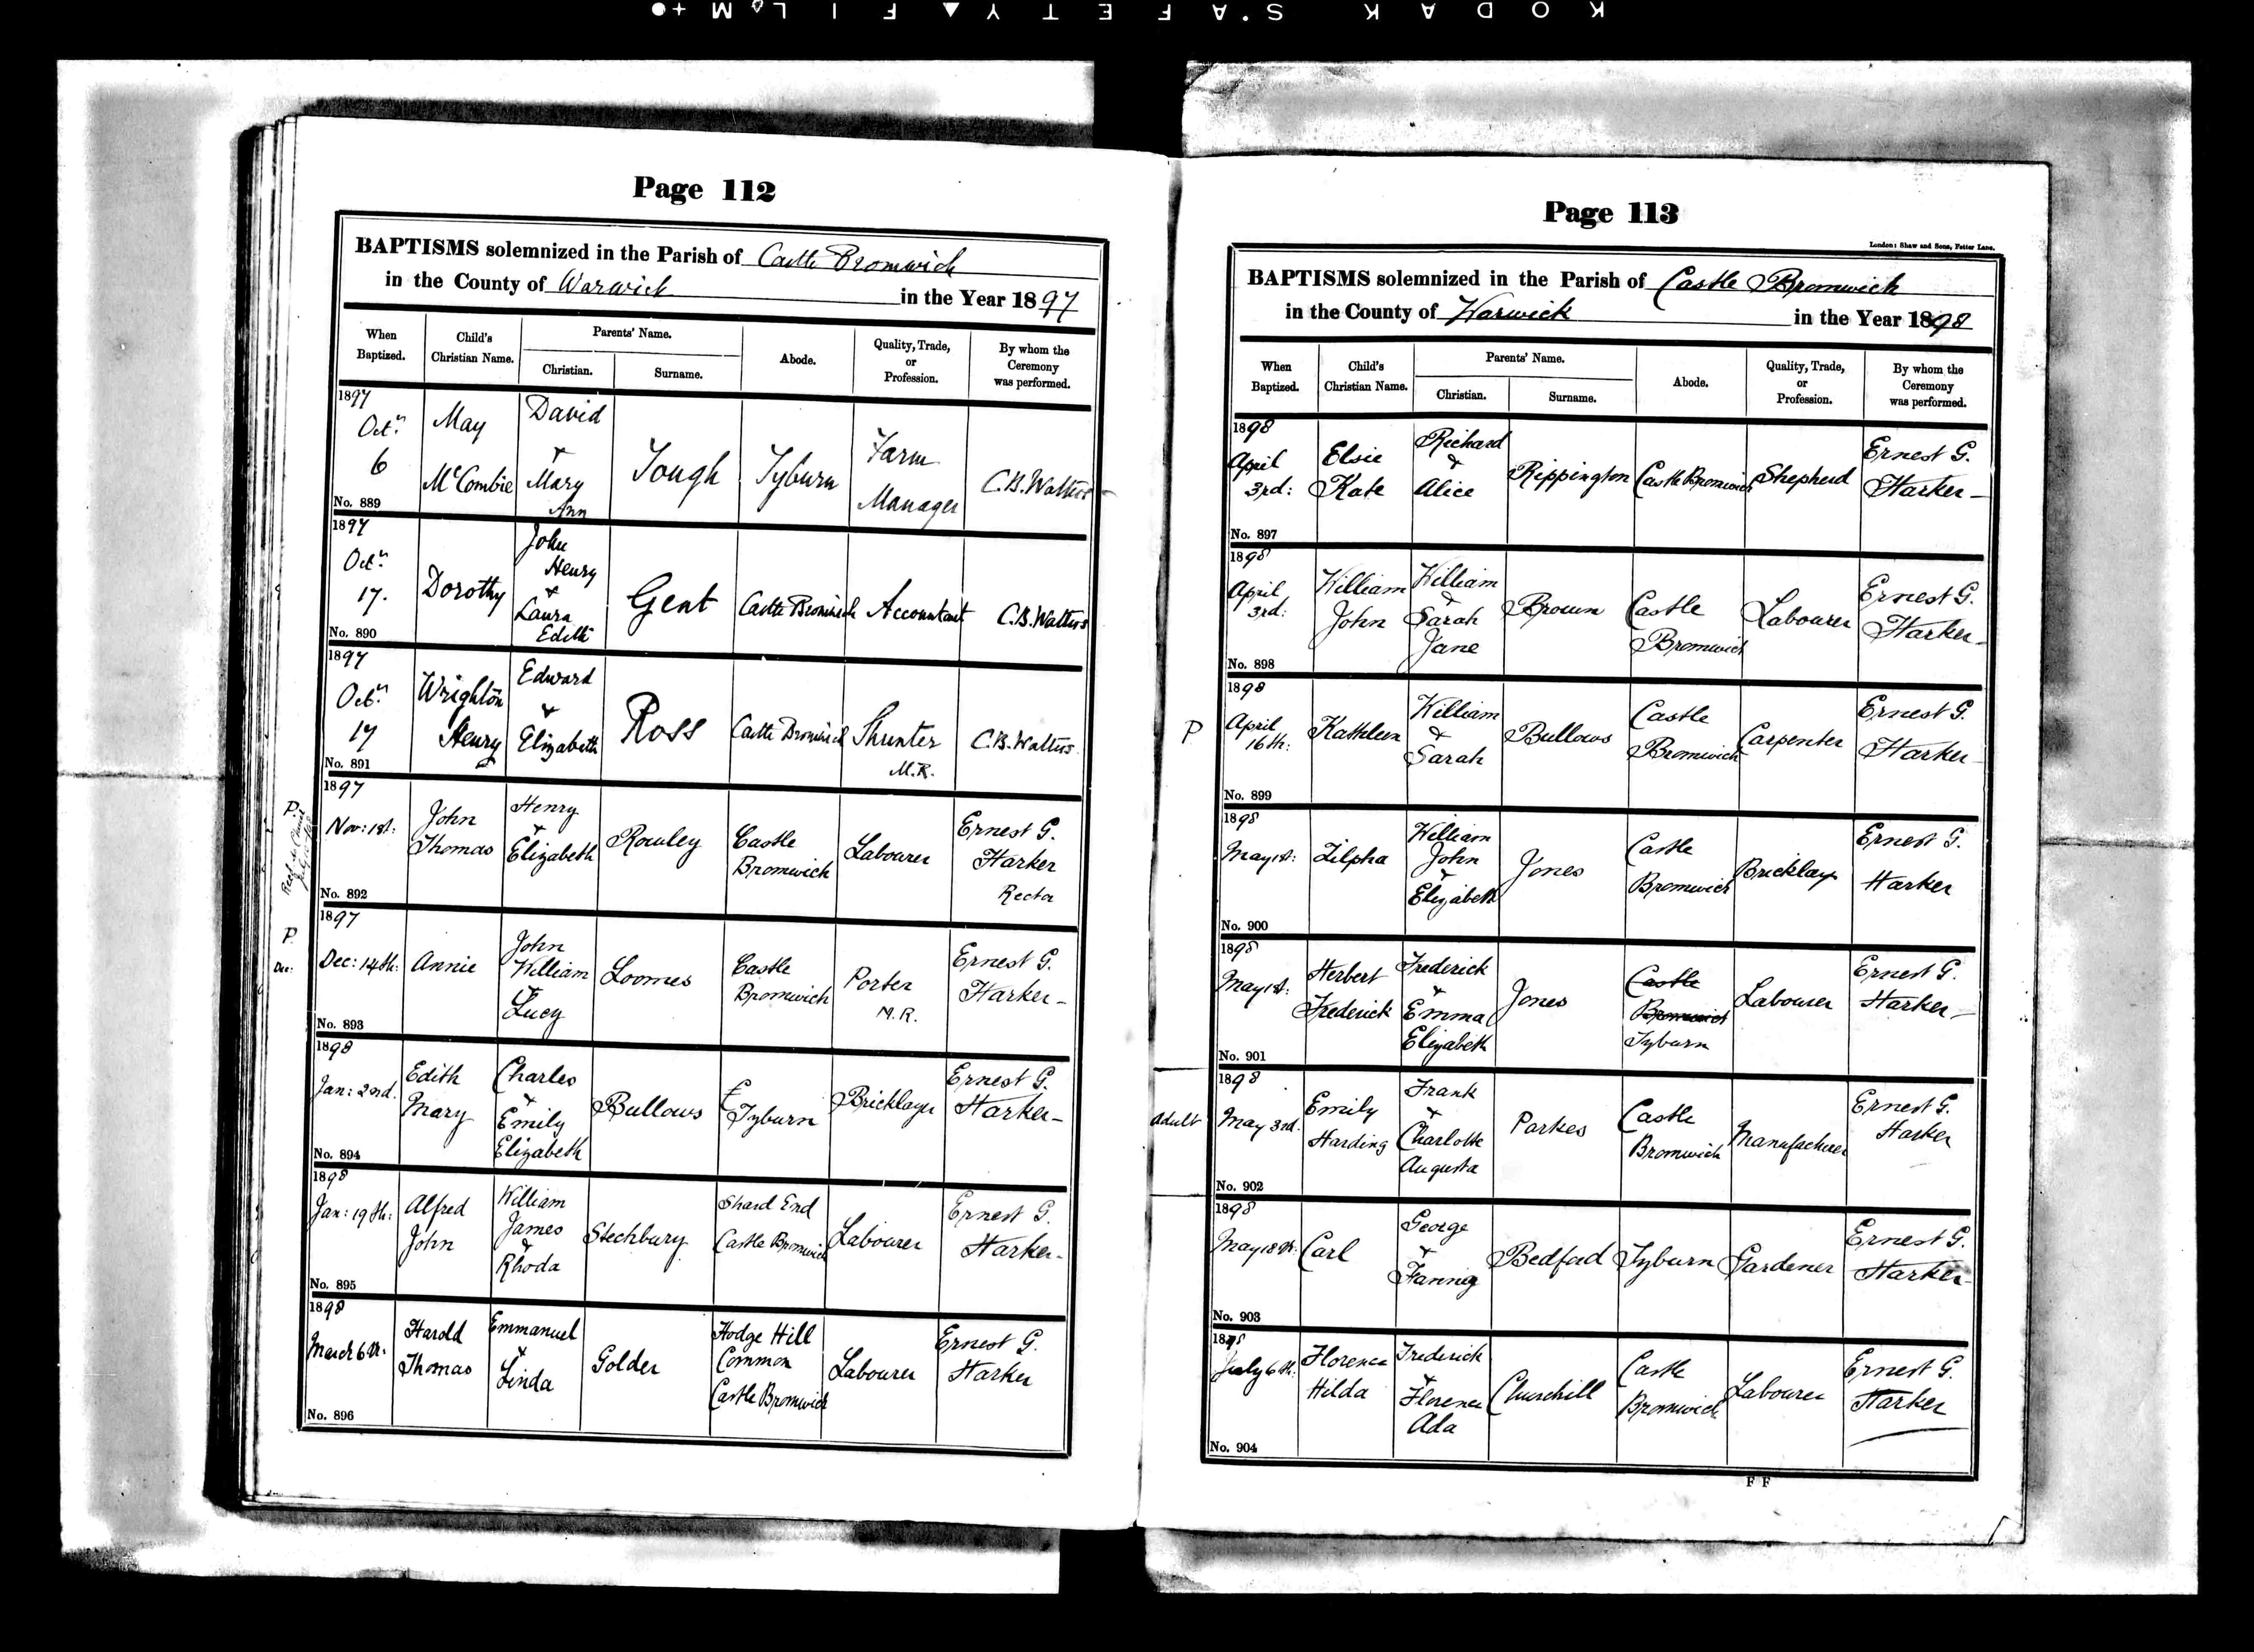 KODAK S'AFETY FILM
Page 112
BAPTISMS solemnized in the Parish of Castle Bromwich
in the County of Warwick in the Year 1897
When Baptized.
Child's Christian Name.
Parents' Name.
Christian.
Surname.
Abode.
Quality, Trade, or Profession.
By whom the Ceremony was performed.
1897 Octr. 6 May McCombie David + Mary Ann Tough Tyburn Farm Manager C.B. Walters
No. 889
1897 Octr. 17. Dorothy John Henry + Laura Edith Gent Castle Bromwich Accountant C.B. Walters
No. 890
1897 Octr. 17 Wrighton Henry Edward + Elizabeth Ross Castle Bromwich Shunter M.R. C.B. Walters
No. 891
P.
1897 Nov: 1st: John Thomas Henry + Elizabeth Rowley Castle Bromwich Labourer Ernest G. Harker Rector
No. 892
P.
Dec:
1897 Dec: 14th: Annie John William + Lucy Loomes Castle Bromwich Porter M.R. Ernest G. Harker
No. 893
1898 Jan: 2nd. Edith Mary Charles + Emily Elizabeth Bullows Tyburn Bricklayer Ernest G. Harker
No. 894
1898 Jan: 19th: Alfred John William James + Rhoda Stechbury Shard End Castle Bromwich Labourer Ernest G. Harker
No. 895
1898 March 6th. Harold Thomas Emmanuel + Linda Golder Hodge Hill Common Castle Bromwich Labourer Ernest G. Harker
No. 896
Page 113
London: Shaw and Sons, Fetter Lane.
BAPTISMS solemnized in the Parish of Castle Bromwich
in the County of Warwick in the Year 1898
When Baptized.
Child's Christian Name.
Parents' Name.
Christian.
Surname.
Abode.
Quality, Trade, or Profession.
By whom the Ceremony was performed.
1898 April 3rd: Elsie Kate Richard + Alice Rippington Castle Bromwich Shepherd Ernest G. Harker
No. 897
1898 April 3rd: William John William + Sarah Jane Brown Castle Bromwich Labourer Ernest G. Harker
No. 898
P
1898 April 16th: Kathleen William + Sarah Bullows Castle Bromwich Carpenter Ernest G. Harker
No. 899
1898 May 1st: Zilpha William John + Elizabeth Jones Castle Bromwich Bricklayer Ernest G. Harker
No. 900
1898 May 1st: Herbert Frederick Frederick + Emma Elizabeth Jones Castle Bromwich Tyburn Labourer Ernest G. Harker
No. 901
Adult
1898 May 3rd. Emily Harding Frank + Charlotte Augusta Parkes Castle Bromwich Manufacturer Ernest G. Harker
No. 902
1898 May 18th: Carl George + Fanny Bedford Tyburn Gardener Ernest G. Harker
No. 903
1898 July 6th: Florence Hilda Frederick + Florence Ada Churchill Castle Bromwich Labourer Ernest G. Harker
No. 904
F F